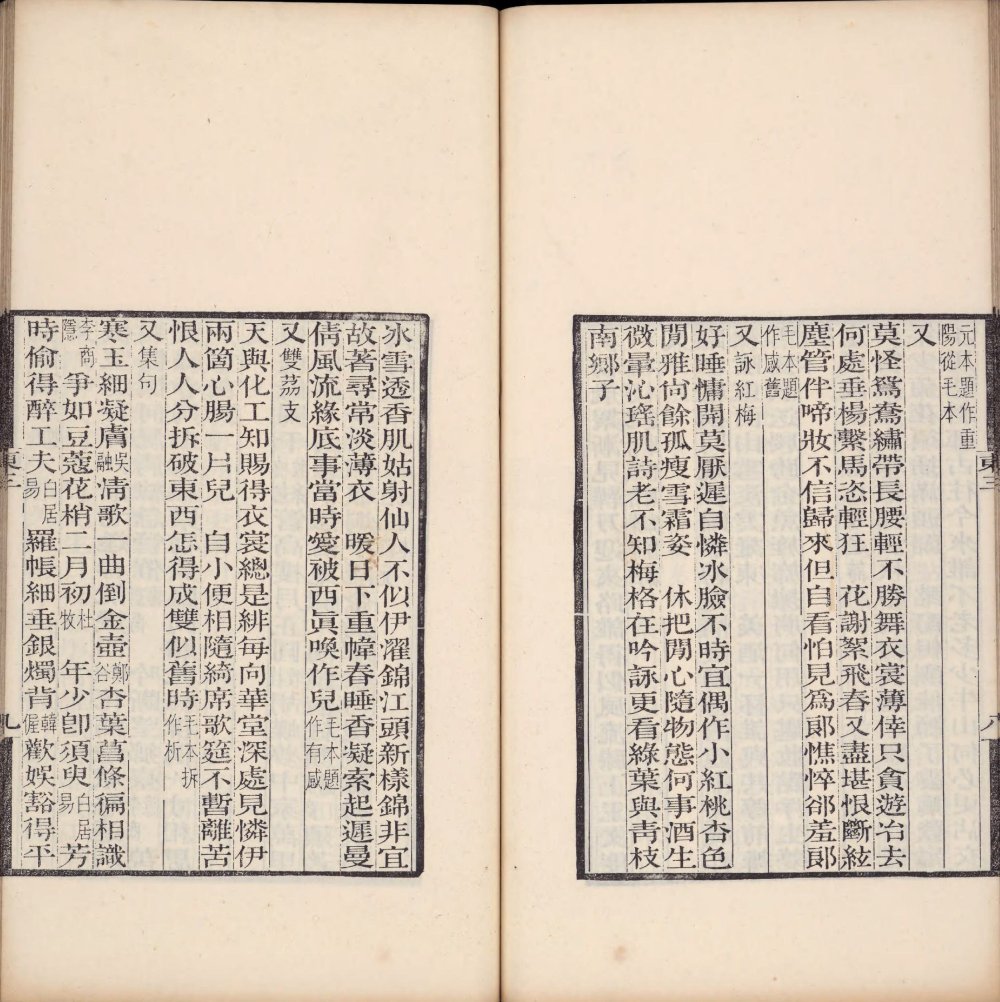 元本題作重
陽從毛本
又
莫怪鴛鴦繡帶長腰輕不勝舞衣裳薄倖只貪遊冶去
何處垂楊繫馬恣輕狂　花謝絮飛春又盡堪恨斷絃
塵管伴啼妝不信歸來但自看怕見爲郞憔悴郤羞郞
毛本題
作感舊
又詠紅梅
好睡慵開莫厭遲自憐冰臉不時宜偶作小紅桃杏色
閒雅尙餘孤瘦雪霜姿　休把閒心隨物態何事酒生
微暈沁瑤肌詩老不知梅格在吟詠更看綠葉與靑枝
南鄉子
東三
八
冰雪透香肌姑射仙人不似伊濯錦江頭新樣錦非宜
故著尋常淡薄衣　暖日下重幃春睡香凝索起遲曼
倩風流緣底事當時愛被西眞喚作兒毛本題作有感
又雙荔支
天與化工知賜得衣裳總是緋每向華堂深處見憐伊
兩箇心腸一片兒　自小便相隨綺席歌筵不暫離苦
恨人人分拆破東西怎得成雙似舊時毛本拆作析
又集句
寒玉細凝膚吳融淸歌一曲倒金壺鄭谷杏葉菖條徧相識
李商隱爭如豆蔻花梢二月初杜牧　年少卽須臾白居易芳
時偷得醉工夫白居易　羅帳細垂銀燭背韓偓歡娛豁得平
東三
九